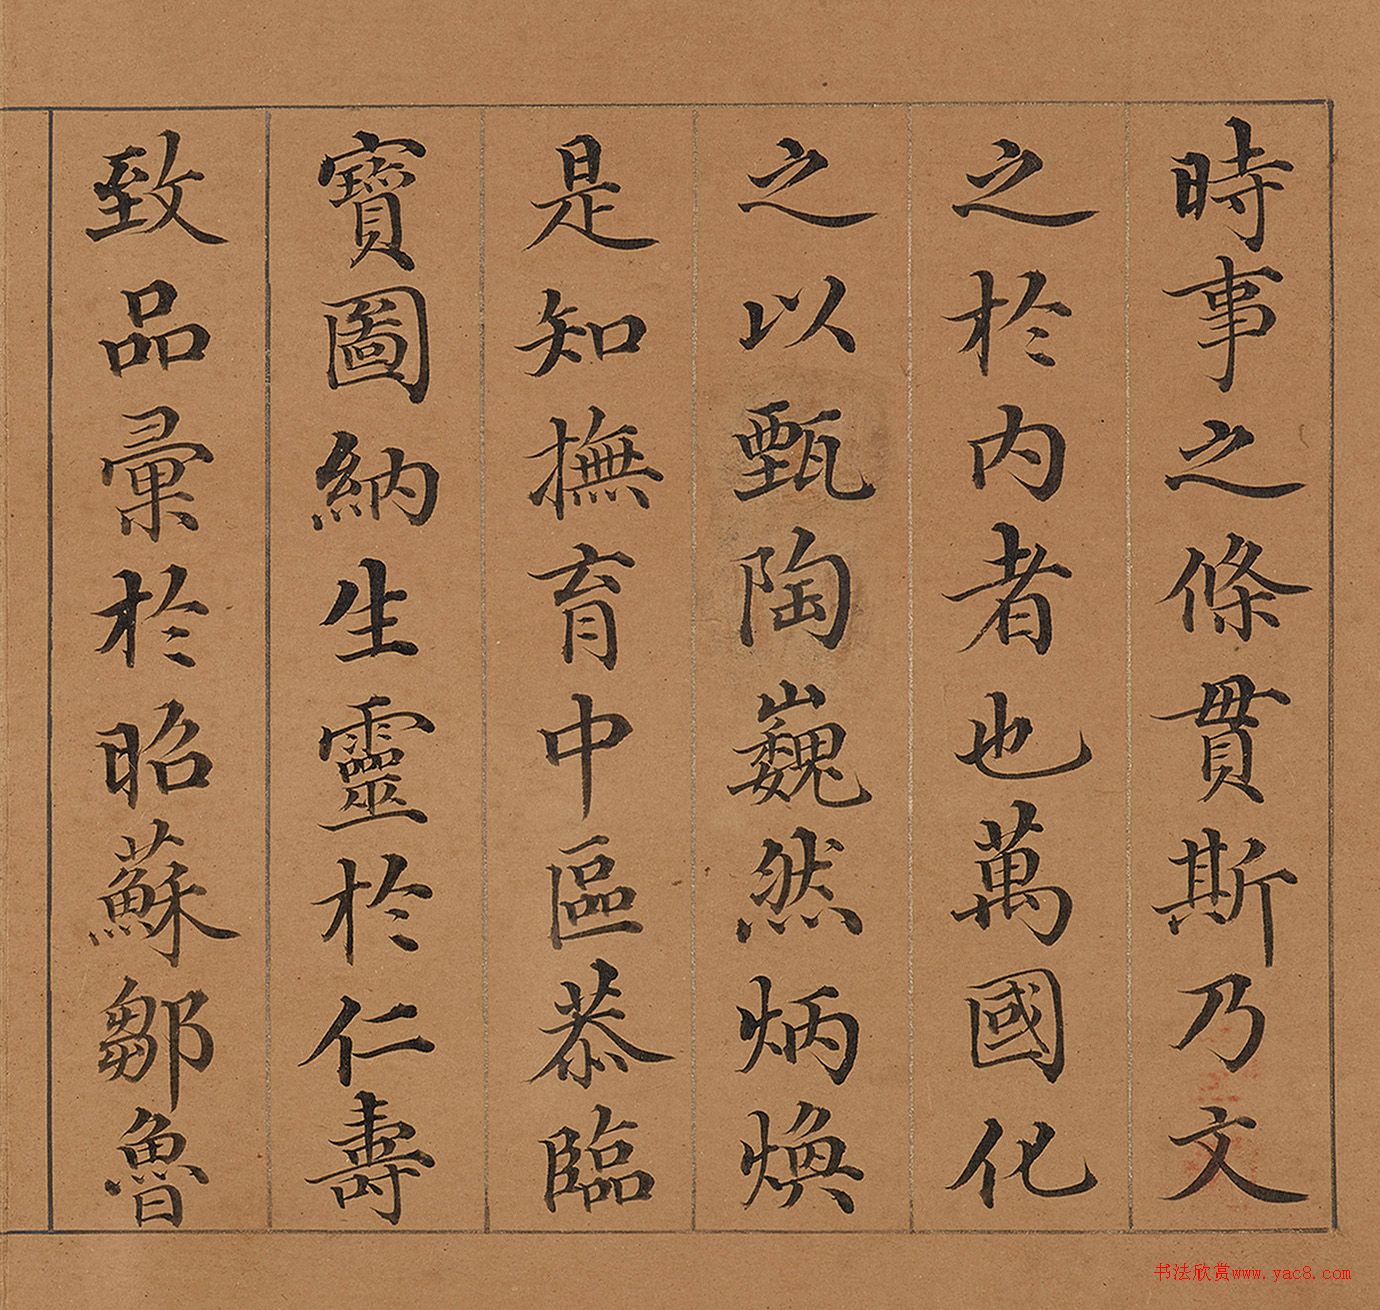 時事之條貫斯乃文
之於内者也萬國化
之以甄陶巍然炳煥
是知撫育中區恭臨
寶圖納生靈於仁壽
致品彙於昭蘇鄒魯
书法欣赏www.yac8.com